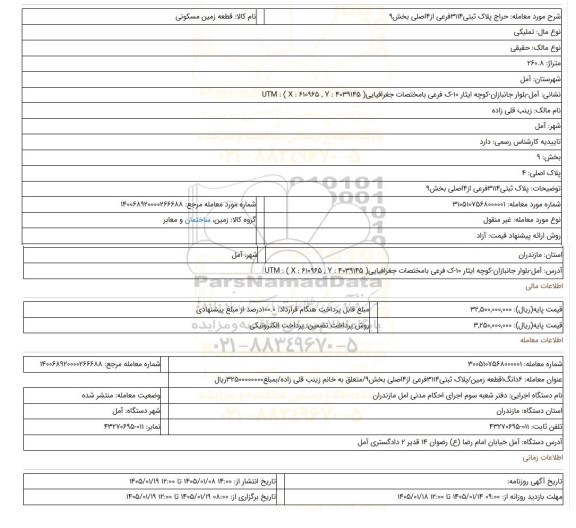 شرح مورد معامله: حراج پلاک ثبتی۳۱۱۴فرعی از۴اصلی بخش۹ نام کالا: قطعه زمین مسکونی
نوع مال: تملیکی
نوع مالک: حقیقی
متراژ: ۲۶۰.۸
شهرستان: آمل
نشانی: آمل-بلوار جانبازان-کوچه ایثار ۱۰-ک فرعی بامختصات جغرافیایی( UTM : ( X : ۶۱۰۹۶۵ , Y : ۴۰۳۹۱۴۵
نام مالک: زینب قلی زاده
شهر: آمل
تاییدیه کارشناس رسمی: دارد
بخش: ۹
پلاک اصلی: ۴
توضیحات: پلاک ثبتی۳۱۱۴فرعی از۴اصلی بخش۹
شماره مورد معامله: ۳۱۰۵۱۰۷۵۶۸۰۰۰۰۰۱ شماره مورد معامله مرجع: ۱۴۰۰۶۸۹۲۰۰۰۰۲۶۶۶۸۸
نوع مورد معامله: غیر منقول گروه کالا: زمین، ساختمان و معابر
روش ارائه پیشنهاد قیمت: آزاد
استان: مازندران شهر: آمل
آدرس: آمل-بلوار جانبازان-کوچه ایثار ۱۰-ک فرعی بامختصات جغرافیایی( UTM : ( X : ۶۱۰۹۶۵ , Y : ۴۰۳۹۱۴۵
ParsNamadData
اطلاعات مالی
قیمت پایه(ریال): ۳۲,۵۰۰,۰۰۰,۰۰۰ مبلغ قابل پرداخت هنگام قرارداد: ۱۰۰.۰درصد از مبلغ پیشنهادی
قیمت پایه(ریال): ۳,۲۵۰,۰۰۰,۰۰۰ روش پرداخت تضمین: پرداخت الکترونیکی
۰۲۱-۸۸۳۴۹۶۷۰-۵
اطلاعات معامله
شماره معامله: ۳۰۰۵۱۰۷۵۶۸۰۰۰۰۰۱ شماره معامله مرجع: ۱۴۰۰۶۸۹۲۰۰۰۰۲۶۶۶۸۸
عنوان معامله: ۶دانگ۱قطعه زمین/پلاک ثبتی۳۱۱۴فرعی از۴اصلی بخش۹/متعلق به خانم زینب قلی زاده/بمبلغ۳۲۵۰۰۰۰۰۰۰۰ریال
نام دستگاه اجرایی: دفتر شعبه سوم اجرای احکام مدنی امل مازندران وضعیت معامله: منتشر شده
استان دستگاه: مازندران شهر دستگاه: آمل
تلفن ثابت: ۰۱۱-۴۳۲۷۰۶۹۵ نمابر: ۰۱۱-۴۳۲۷۰۶۹۵
آدرس دستگاه: آمل خیابان امام رضا (ع) رضوان ۱۴ قدیر ۲ دادگستری آمل
اطلاعات زمانی
تاریخ آگهی روزنامه: تاریخ انتشار از: ۱۴:۰۰ ۱۴۰۵/۰۱/۰۸ تا ۱۲:۰۰ ۱۴۰۵/۰۱/۱۹
مهلت بازدید روزانه از: ۰۹:۰۰ ۱۴۰۵/۰۱/۱۴ تا ۱۲:۰۰ ۱۴۰۵/۰۱/۱۸ تاریخ برگزاری از: ۰۸:۰۰ ۱۴۰۵/۰۱/۱۹ تا ۱۲:۰۰ ۱۴۰۵/۰۱/۱۹